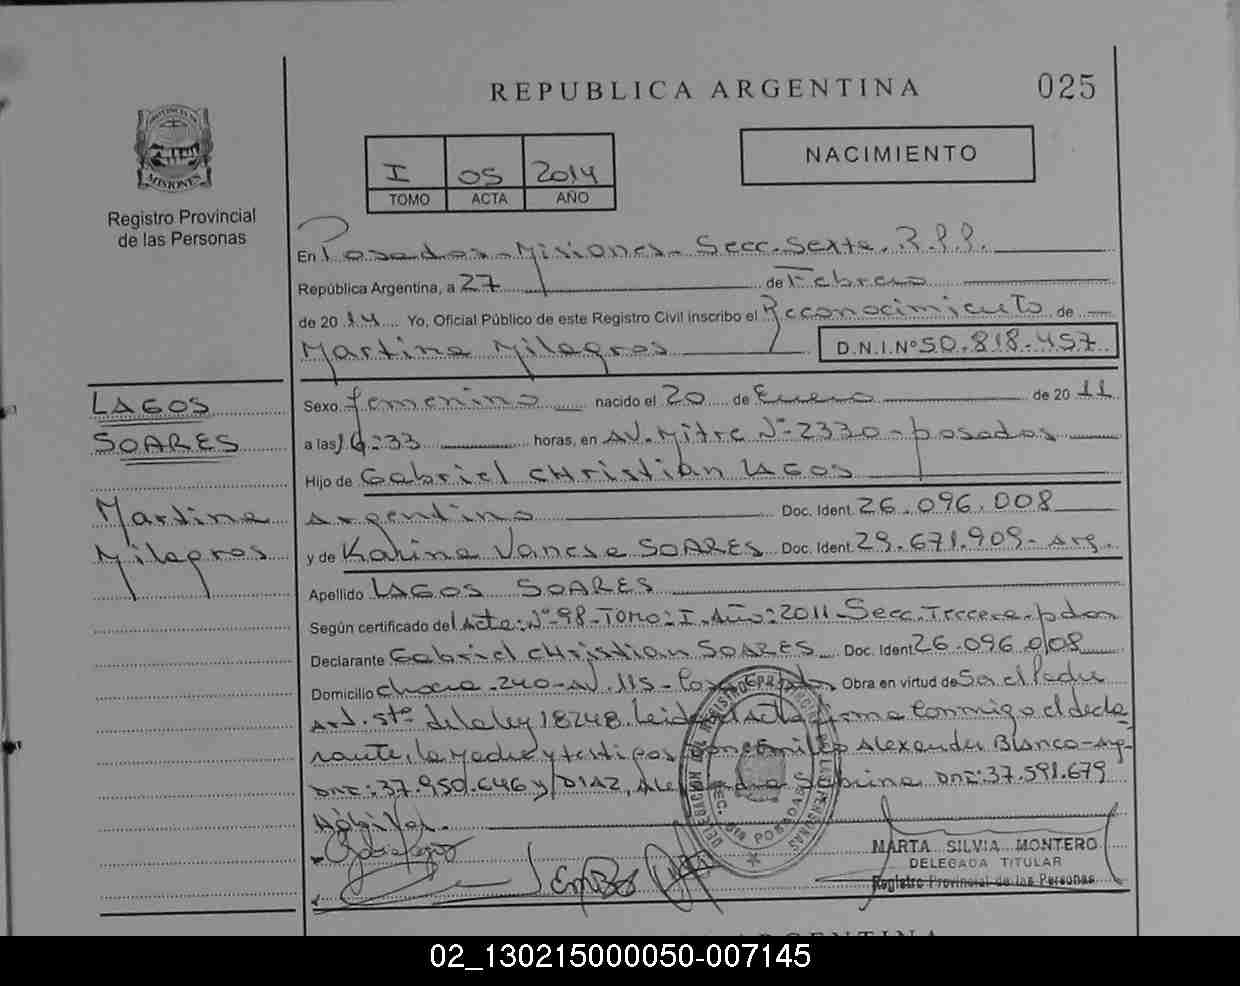 REPUBLICA ARGENTINA
025
PROVINCIA DE
MISIONES
Registro Provincial
de las Personas
I 05 2014
TOMO ACTA AÑO
NACIMIENTO
En Posadas - Misiones - Secc. Sexta. R.P.P.
República Argentina, a 27 de Febrero
de 20 14 Yo, Oficial Público de este Registro Civil inscribo el Reconocimiento de
Martina Milagros D.N.I.Nº 50.818.457
LAGOS
SOARES
Martina
Milagros
Sexo femenino nacido el 20 de Enero de 20 11
a las 16:33 horas, en AV. Mitre Nº 2330 - posadas
Hijo de Gabriel CHristian LAGOS
Argentino Doc. Ident. 26.096.008
y de Karina Vanesa SOARES Doc. Ident. 29.671.909 - Arg.
Apellido LAGOS SOARES
Según certificado del Acta: Nº 98 - TOMO: I. Año: 2011 - Secc. Tercera - pdas
Declarante Gabriel CHristian SOARES Doc. Ident. 26.096.008
Domicilio chacra - 240 - AV. 115 - Obra en virtud de Ser el Padre
Art. de la ley 18248. Leida el Acta firma conmigo el decla-
rante, la Madre y testigos Alexander Blanco - Arg -
DNI: 37.950.646 y DIAZ, Sabrina DNI: 37.591.679
DELEGACION DEL REGISTRO PROVINCIAL DE LAS PERSONAS
SEC. 6ta POSADAS
MARTA SILVIA MONTERO
DELEGADA TITULAR
Registro Provincial de las Personas
02_130215000050-007145